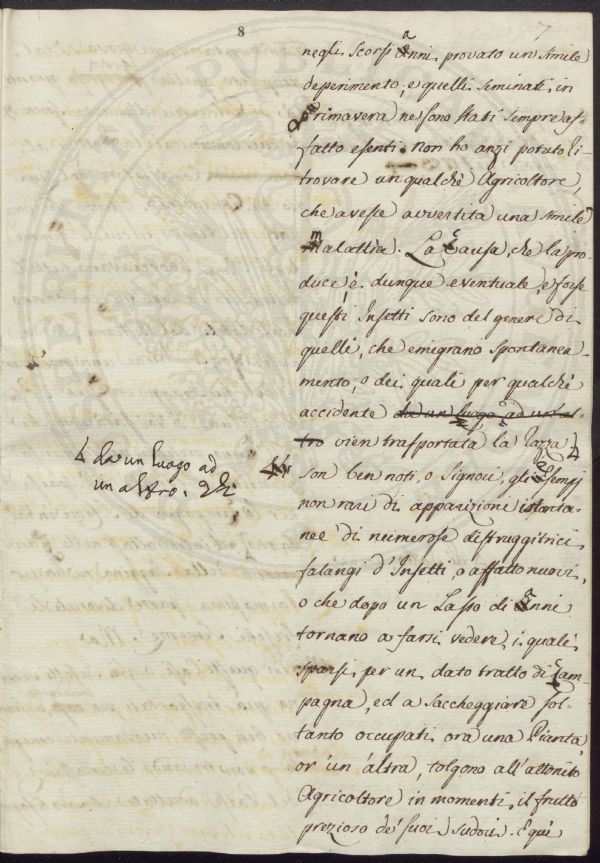 8
7
negli scorsi anni provato un simile
deperimento, e quelli seminati in
Primavera ne sono stati sempre af-
fatto esenti. non ho anzi potuto ri-
trovare un qualche Agricoltore,
che avesse avvertita una simile
malattia. La causa, che la pro-
duce è dunque eventuale, e forse
questi Insetti sono del genere di
quelli, che emigrano spontanea-
mento, o dei quali per qualche
accidente da un luogo ad un al-
tro vien trasportata la razza
da un luogo ad
un altro.
son ben noti, o Signori, gli esempj
non rari di apparizioni istanta-
nee di numerose distruggitrici
falangi d'Insetti, o affatto nuovi,
o che dopo un Lasso di anni
tornano a farsi vedere, i quali
sparsi per un dato tratto di Cam-
pagna, ed a saccheggiare sol-
tanto occupati ora una Pianta
or' un' altra, tolgono all'attonito
Agricoltore in momenti il frutto
prezioso de' suoi sudori. E quì